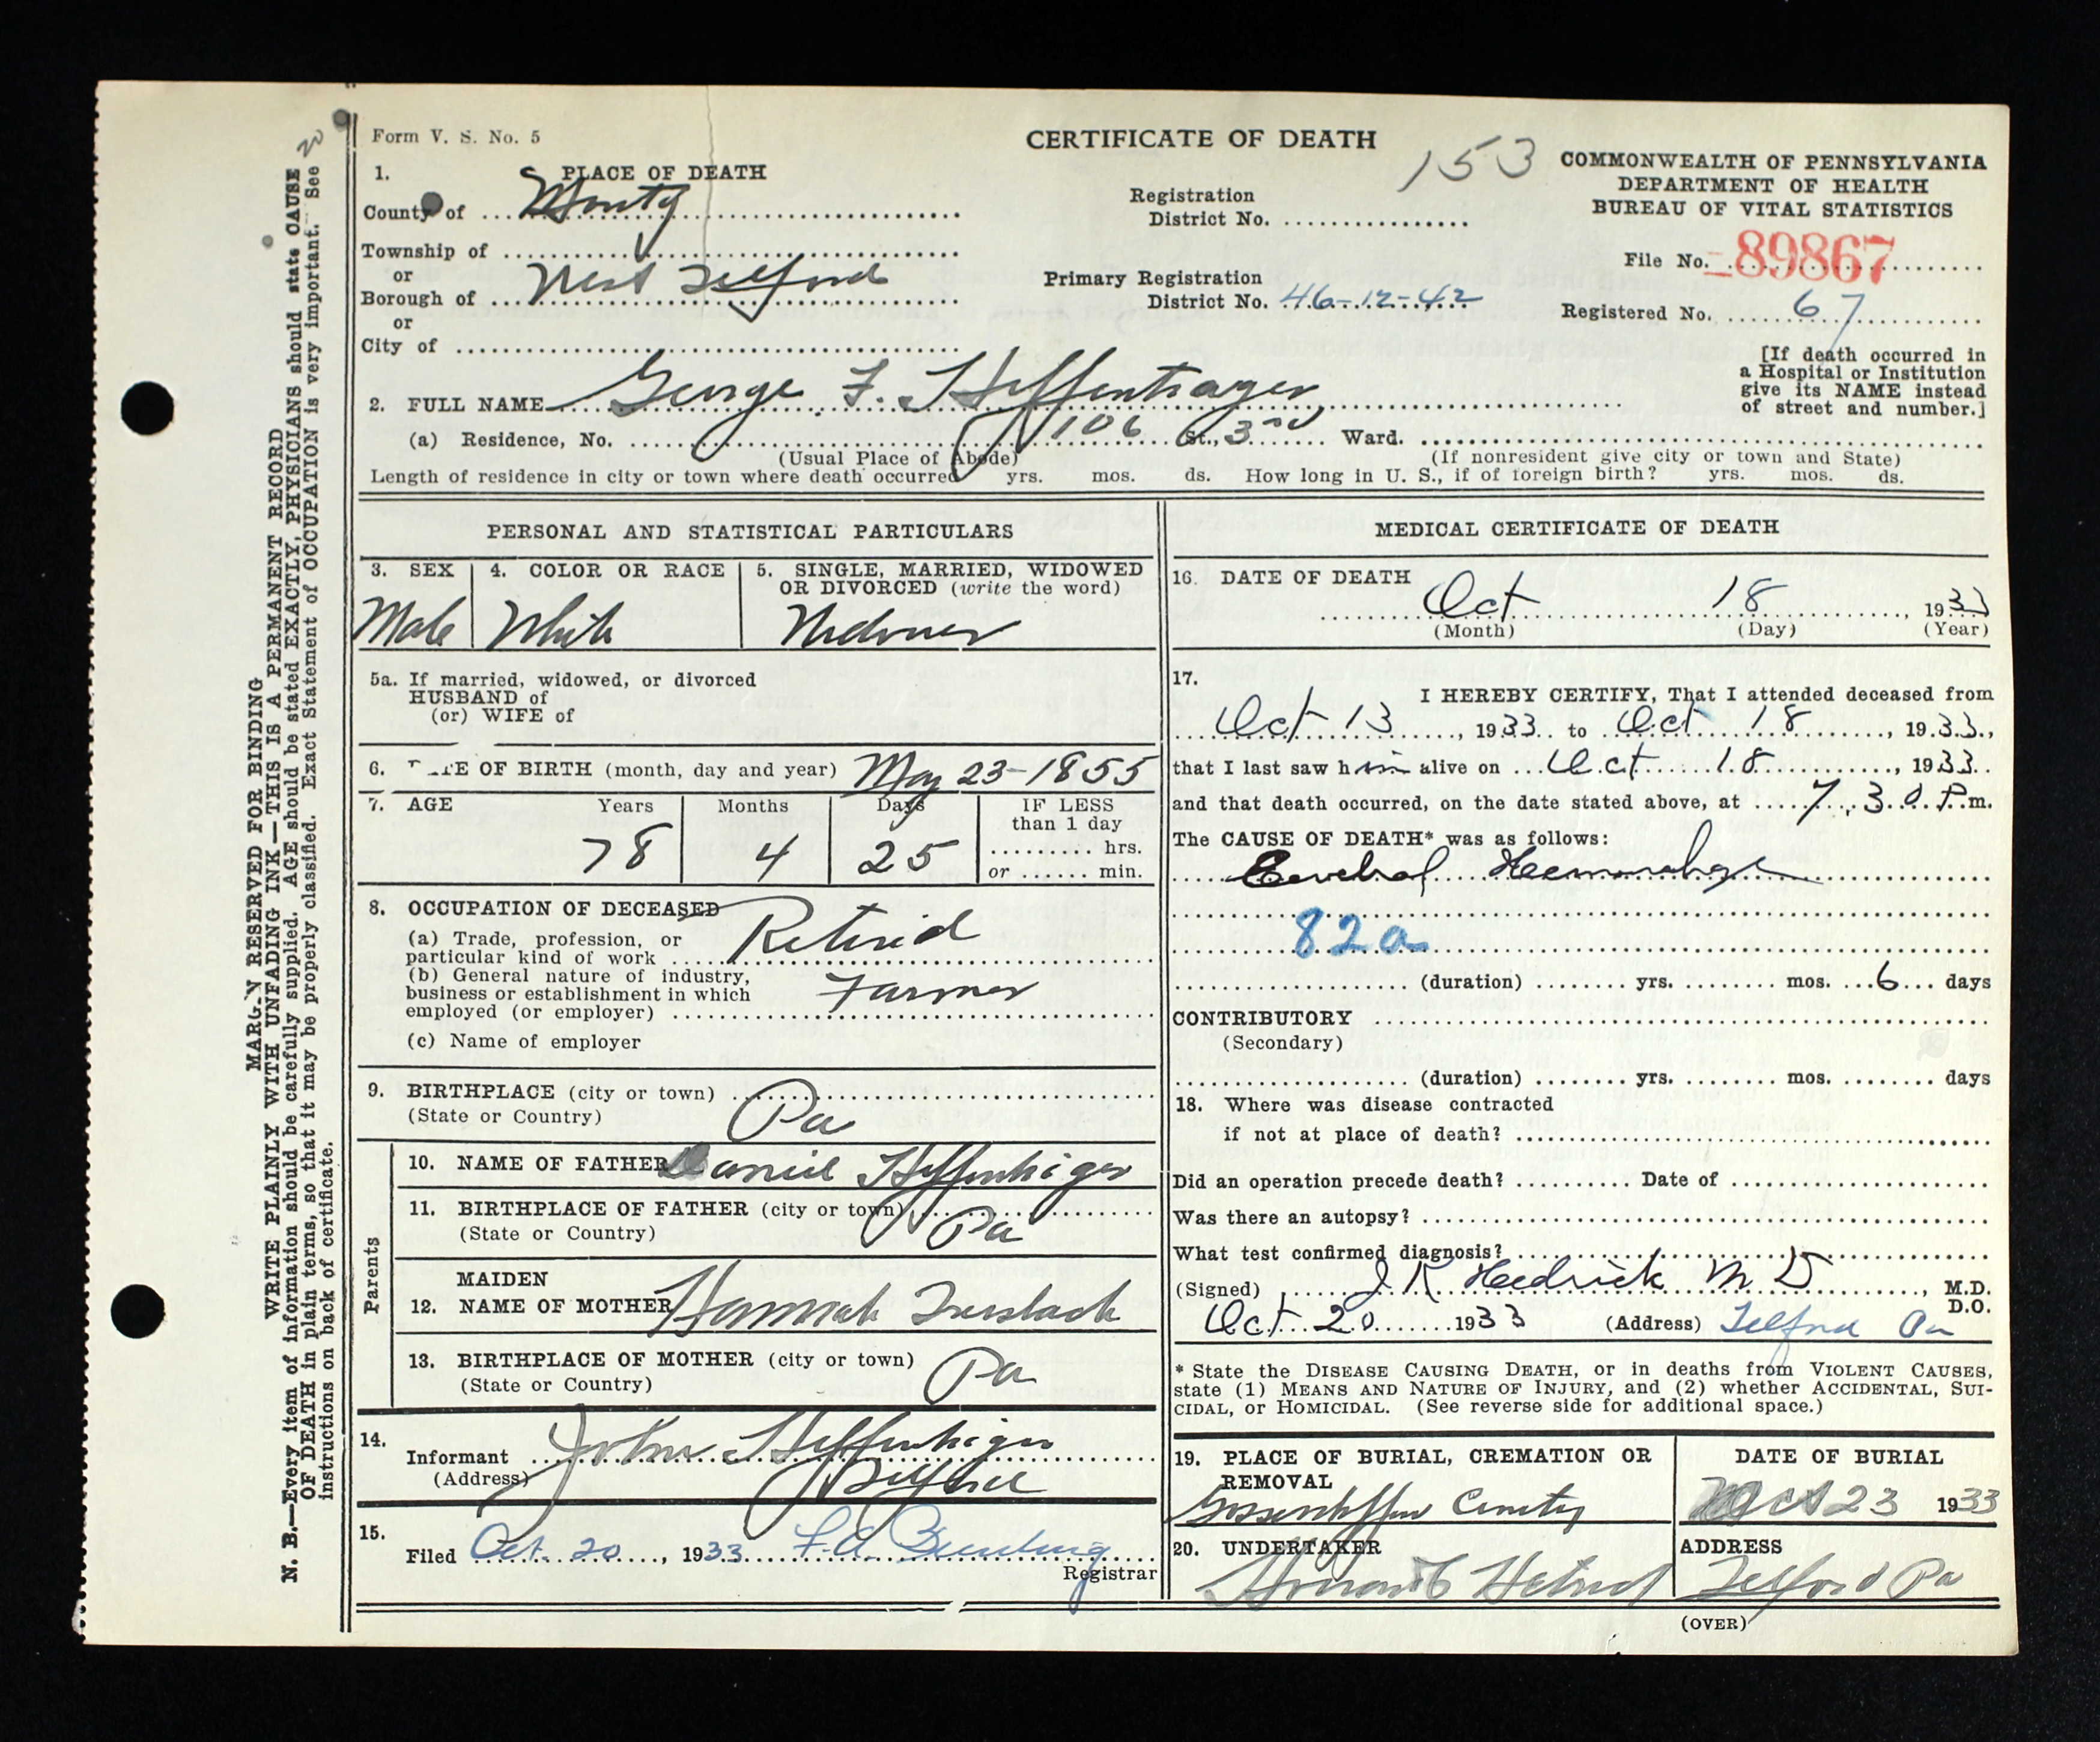 Form V. S. No. 5
CERTIFICATE OF DEATH
153
COMMONWEALTH OF PENNSYLVANIA
DEPARTMENT OF HEALTH
BUREAU OF VITAL STATISTICS
1. PLACE OF DEATH
County of Montg
Registration
District No.
File No. 89867
Township of
or
Borough of West Telford
Primary Registration
District No. 46-12-42
Registered No. 67
or
City of
[If death occurred in
a Hospital or Institution
give its NAME instead
of street and number.]
2. FULL NAME George F. Heffentrager
(a) Residence, No. 106 St., 3rd Ward.
(Usual Place of Abode)
(If nonresident give city or town and State)
Length of residence in city or town where death occurred yrs. mos. ds. How long in U. S., if of foreign birth? yrs. mos. ds.
PERSONAL AND STATISTICAL PARTICULARS
3. SEX
Male
4. COLOR OR RACE
White
5. SINGLE, MARRIED, WIDOWED
OR DIVORCED (write the word)
Widower
5a. If married, widowed, or divorced
HUSBAND of
(or) WIFE of
6. DATE OF BIRTH (month, day and year) May 23-1855
7. AGE Years Months Days
78 4 25
IF LESS
than 1 day
hrs.
or min.
8. OCCUPATION OF DECEASED
(a) Trade, profession, or
particular kind of work Retired
(b) General nature of industry,
business or establishment in which
employed (or employer) Farmer
(c) Name of employer
9. BIRTHPLACE (city or town)
(State or Country) Pa
Parents
10. NAME OF FATHER Daniel Heffenhiger
11. BIRTHPLACE OF FATHER (city or town)
(State or Country) Pa
MAIDEN
12. NAME OF MOTHER Hannah
13. BIRTHPLACE OF MOTHER (city or town)
(State or Country) Pa
14.
Informant John Heffenhiger
(Address) Telford
15.
Filed Oct. 20, 1933
Registrar
MEDICAL CERTIFICATE OF DEATH
16. DATE OF DEATH
Oct 18, 1933
(Month) (Day) (Year)
17.
I HEREBY CERTIFY, That I attended deceased from
Oct 13, 1933 to Oct 18, 1933,
that I last saw him alive on Oct 18, 1933
and that death occurred, on the date stated above, at 7.30 P.m.
The CAUSE OF DEATH* was as follows:
Cerebral Hemorrhage
82a
(duration) yrs. mos. 6 days
CONTRIBUTORY
(Secondary)
(duration) yrs. mos. days
18. Where was disease contracted
if not at place of death?
Did an operation precede death? Date of
Was there an autopsy?
What test confirmed diagnosis?
(Signed) J R Hedrick M D, M.D.
D.O.
Oct 20 1933 (Address) Telford Pa
* State the DISEASE CAUSING DEATH, or in deaths from VIOLENT CAUSES,
state (1) MEANS AND NATURE OF INJURY, and (2) whether ACCIDENTAL, SUI-
CIDAL, or HOMICIDAL. (See reverse side for additional space.)
19. PLACE OF BURIAL, CREMATION OR
REMOVAL
DATE OF BURIAL
Oct 23 1933
20. UNDERTAKER
ADDRESS
Telford Pa
(OVER)
MARGIN RESERVED FOR BINDING
WRITE PLAINLY WITH UNFADING INK—THIS IS A PERMANENT RECORD
N. B.—Every item of information should be carefully supplied. AGE should be stated EXACTLY, PHYSICIANS should state CAUSE
OF DEATH in plain terms, so that it may be properly classified. Exact Statement of OCCUPATION is very important. See
instructions on back of certificate.